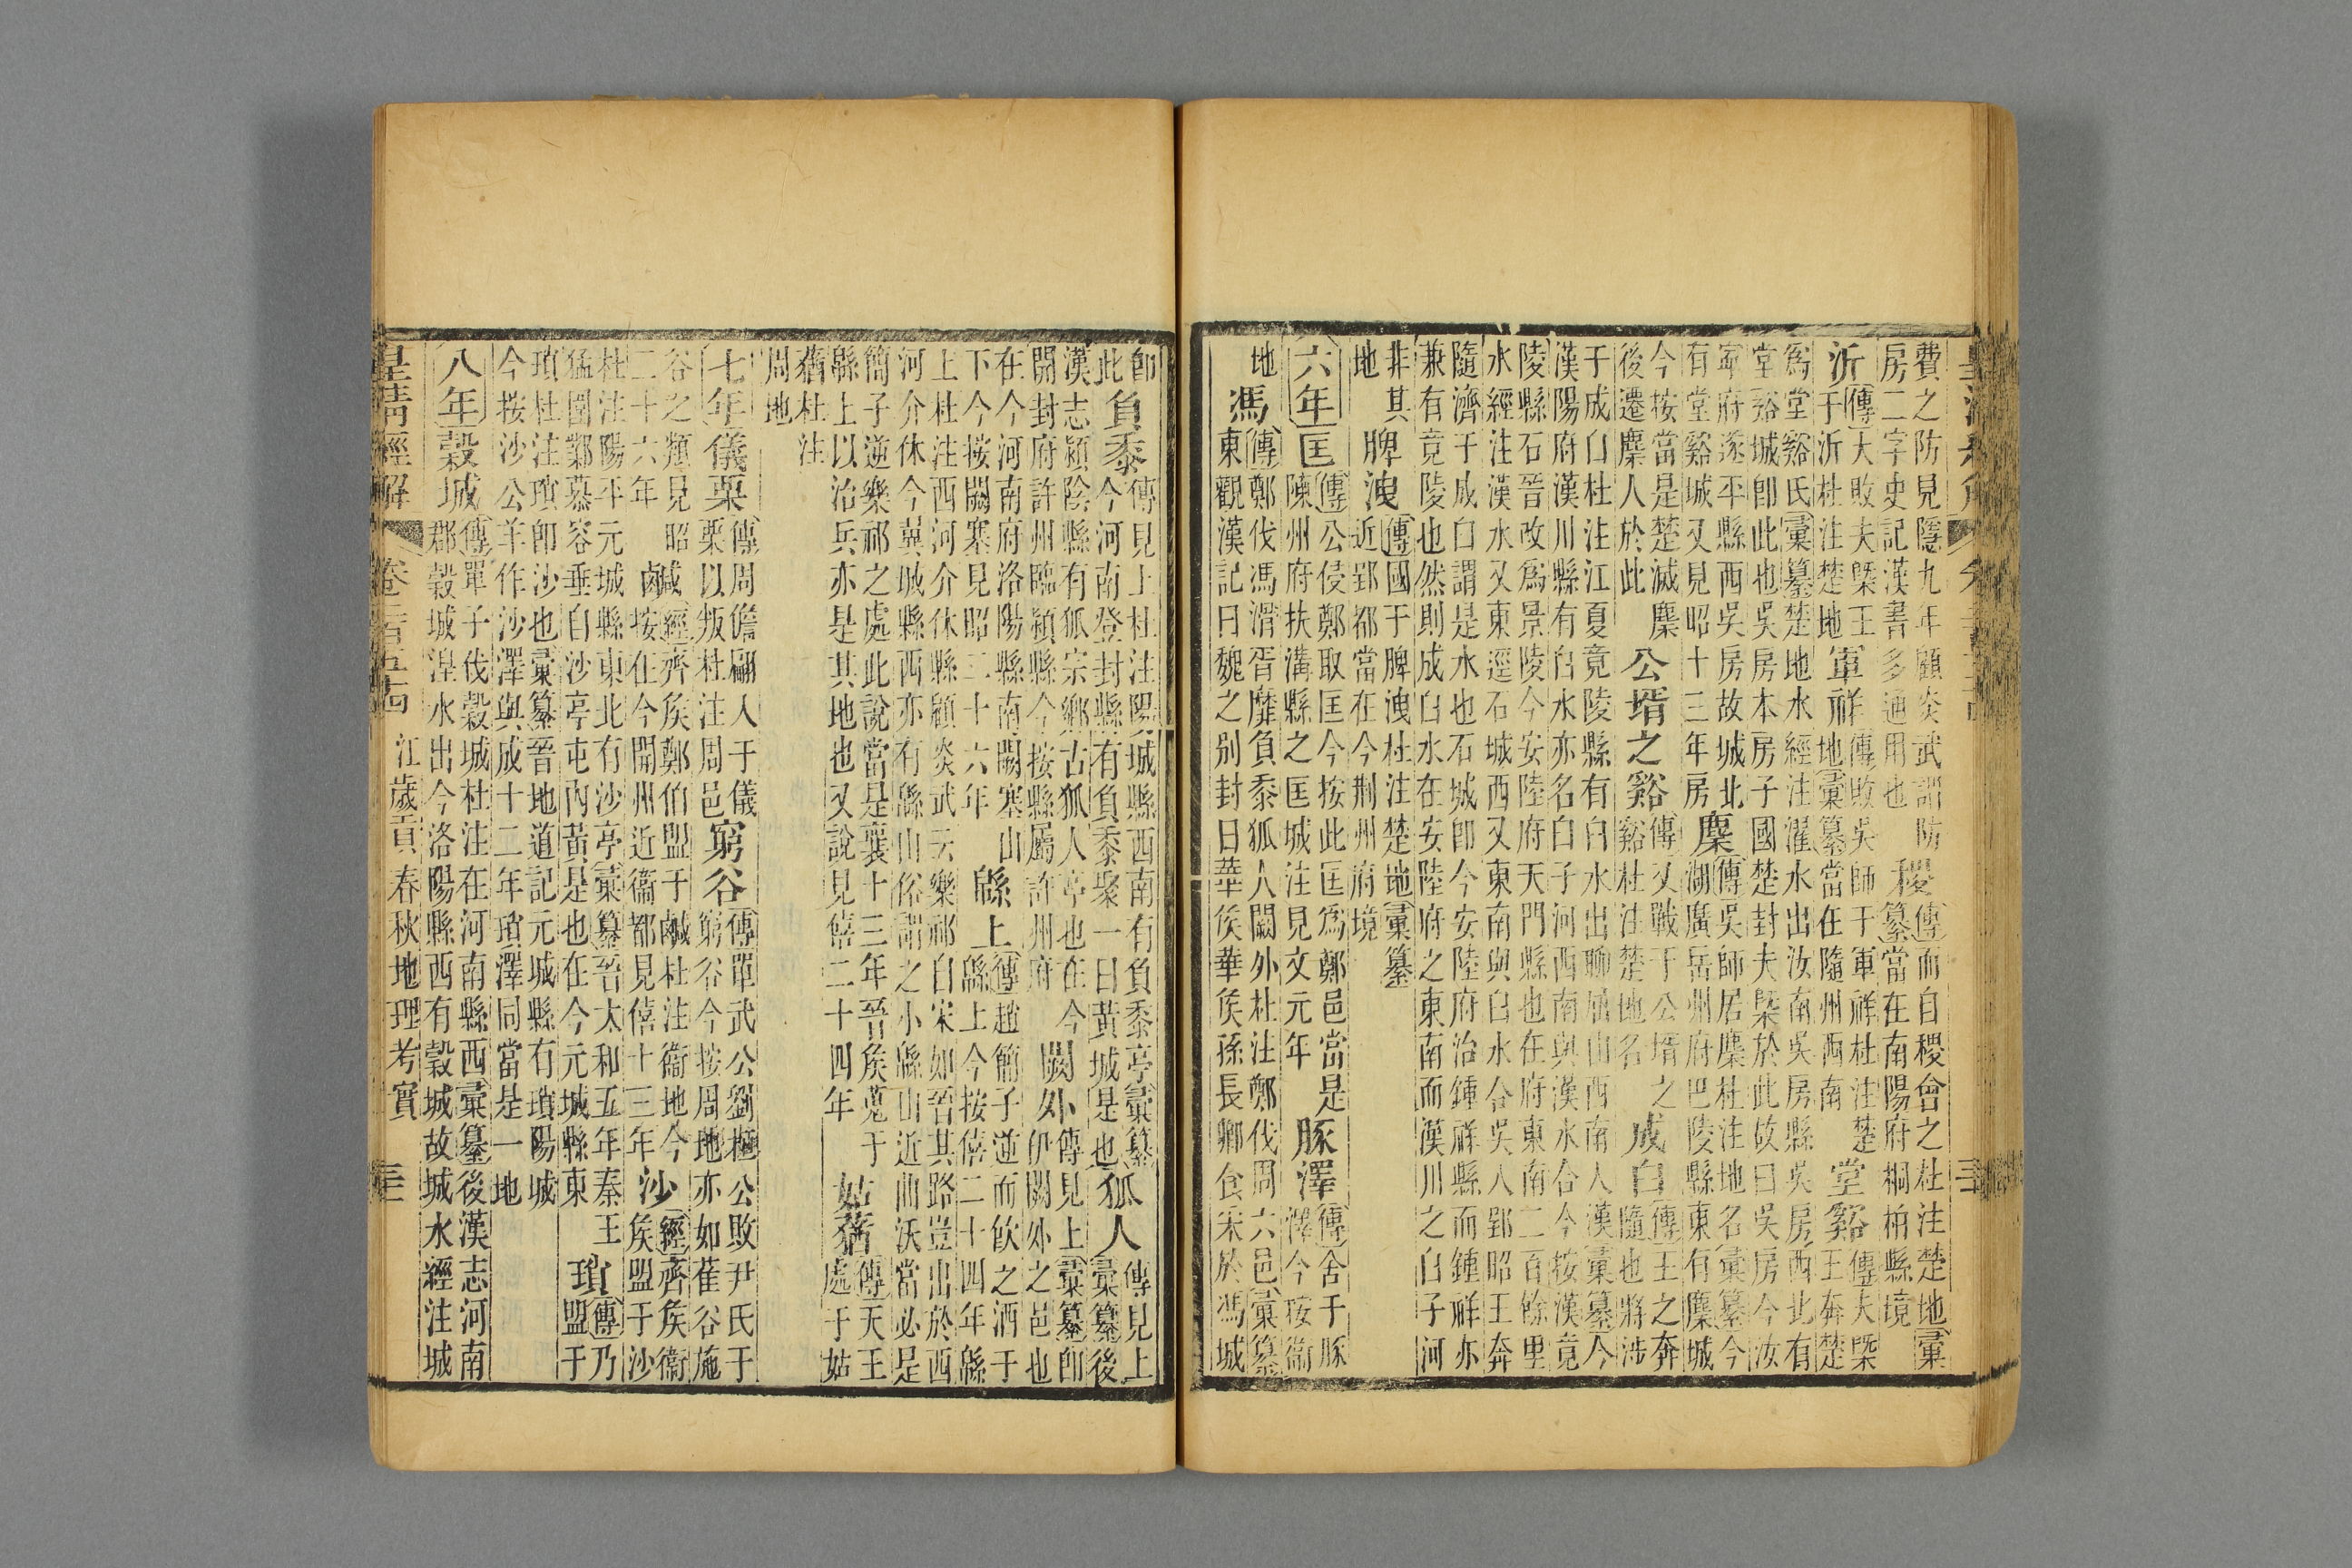 費之防見隱九年顧炎武謂防
房二字史記漢書多通用也
稷
傳而自稷會之杜注楚地彙
纂當在南陽府桐柏縣境
沂
傳大敗夫槩王
于沂杜注楚地
軍祥
傳敗吳師于軍祥杜注楚
地彙纂當在隨州西南
堂谿
傳夫槩
王奔楚
爲堂谿氏彙纂楚地水經注濯水出汝南吳房縣吳房西北有
堂谿城卽此也吳房本房子國楚封夫槩於此故曰吳房今汝
寧府遂平縣西吳房故城北
有堂谿城又見昭十三年房
麇
傳吳師居麇杜注地名彙纂今
湖廣岳州府巴陵縣東有麇城
今按當是楚滅麇
後遷麇人於此
公壻之谿
傳又戰于公壻之
谿杜注楚地名
成臼
傳王之奔
隨也將涉
于成臼杜注江夏竟陵縣有臼水出聊屈山西南入漢彙纂今
漢陽府漢川縣有臼水亦名臼子河西南與漢水合今按漢竟
陵縣石晉改爲景陵今安陸府天門縣也在府東南二百餘里
水經注漢水又東逕石城西又東南與臼水合吳人郢昭王奔
隨濟于成臼謂是水也石城卽今安陸府治鍾祥縣而鍾祥亦
兼有竟陵也然則成臼水在安陸府之東南而漢川之臼子河
非其
地
脾洩
傳國于脾洩杜注楚地彙纂
近郢都當在今荆州府境
六年
匡
傳公侵鄭取匡今按此匡爲鄭邑當是
陳州府扶溝縣之匡城注見文元年
豚澤
傳舍于豚
澤今按衞
地
馮
傳鄭伐馮滑胥靡負黍狐人闕外杜注鄭伐周六邑彙纂
東觀漢記曰魏之别封曰華侯華侯孫長卿食宋於馮城
卽
此
負黍
傳見上杜注陽城縣西南有負黍亭彙纂
今河南登封縣有負黍聚一曰黃城是也
狐人
傳見上
彙纂後
漢志潁陰縣有狐宗鄉古狐人亭也在今
開封府許州臨潁縣今按縣屬許州府
闕外
傳見上彙纂卽
伊闕外之邑也
在今河南府洛陽縣南闕塞山
下今按闕塞見昭二十六年
緜上
傳趙簡子逆而飲之酒于
緜上今按僖二十四年緜
上杜注西河介休縣顧炎武云樂祁自宋如晉其路豈出於西
河介休今翼城縣西亦有緜山俗謂之小緜山近曲沃當必是
簡子逆樂祁之處此說當是襄十三年晉侯蒐于
緜上以治兵亦是其地也又說見僖二十四年
姑蕕
傳天王
處于姑
蕕杜注
周地
七年
儀栗
傳周儋翩人于儀
栗以叛杜注周邑
窮谷
傳單武公劉桓公敗尹氏于
窮谷今按周地亦如萑谷施
谷之類見昭
二十六年
鹹
經齊侯鄭伯盟于鹹杜注衞地今
按在今開州近衞都見僖十三年
沙
經齊侯衞
侯盟于沙
杜注陽平元城縣東北有沙亭彙纂晉太和五年秦王
猛圍鄴慕容垂自沙亭屯內黃是也在今元城縣東
瑣
傳乃
盟于
瑣杜注瑣卽沙也彙纂晉地道記元城縣有瑣陽城
今按沙公羊作沙澤與成十二年瑣澤同當是一地
八年
穀城
傳單子伐穀城杜注在河南縣西彙纂後漢志河南
郡穀城湼水出今洛陽縣西有穀城故城水經注城
皇清經解
卷二百五十四
江歲貢春秋地理考實